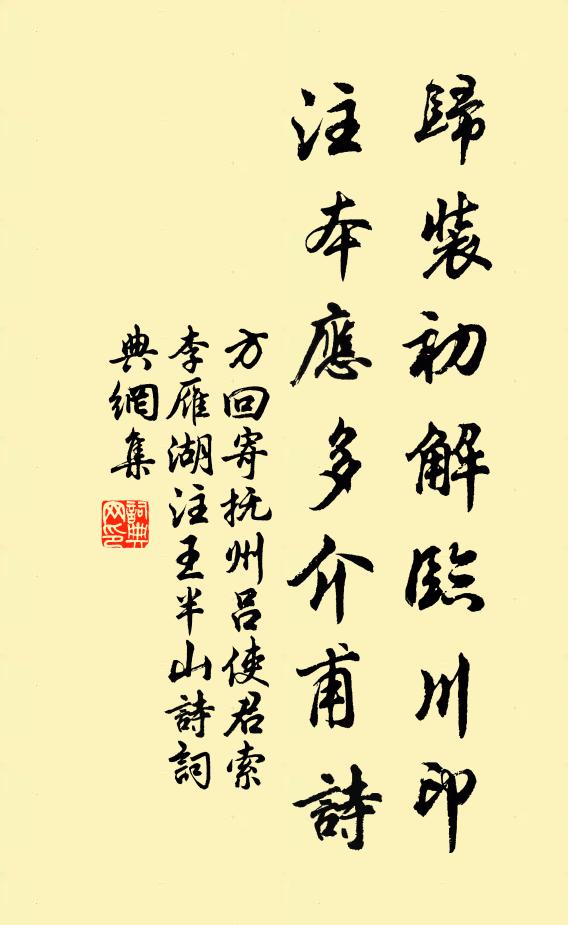 歸裝初解臨川印
注本應多介甫詩
方回寄抚州呂使君索
李雁湖注王半山詩詞
典網集
詞典
网印